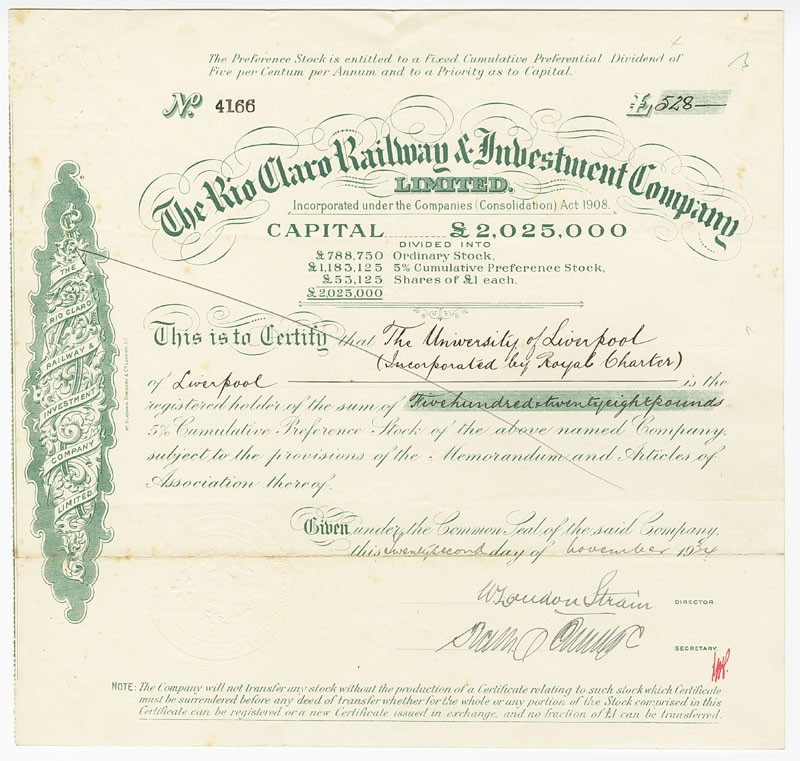 The Preference Stock is entitled to a fixed Cumulative Preferential Dividend of
Five per Centum per Annum and to a Priority as to Capital.
No. 4166
£528—
The Rio Claro Railway & Investment Company
LIMITED.
Incorporated under the Companies (Consolidation) Act 1908.
CAPITAL £2,025,000
DIVIDED INTO
£788,750 Ordinary Stock,
£1,183,125 5% Cumulative Preference Stock,
£53,125 Shares of £1 each.
£2,025,000
This is to Certify that The University of Liverpool
(Incorporated by Royal Charter)
of Liverpool is the
registered holder of the sum of Five hundred & twenty eight pounds
5% Cumulative Preference Stock of the above named Company,
subject to the provisions of the Memorandum and Articles of
Association thereof.
Given under the Common Seal of the said Company,
this twenty second day of november 1934
DIRECTOR
SECRETARY
NOTE: The Company will not transfer any stock without the production of a Certificate relating to such stock which Certificate
must be surrendered before any deed of transfer whether for the whole or any portion of the Stock comprised in this
Certificate can be registered or a new Certificate issued in exchange, and no fraction of £1 can be transferred.
THE
RIO CLARO
RAILWAY &
INVESTMENT
COMPANY
LIMITED